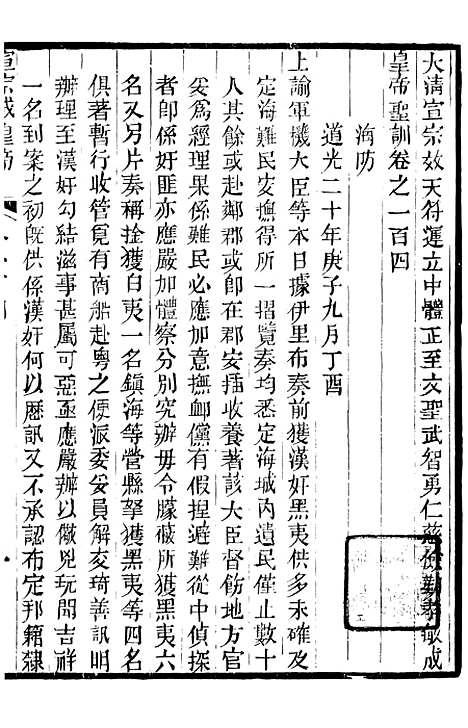 大清宣宗效天符運立中體正至文聖武智勇仁慈儉勤孝敏成
皇帝聖訓卷之一百四
海防
道光二十年庚子九月丁酉
上諭軍機大臣等本日據伊里布奏前獲漢奸黑夷供多未確及
定海難民安撫得所一摺覽奏均悉定海城內遺民僅止數十
人其餘或赴鄰郡或卽在郡安插收養著該大臣督飭地方官
妥為經理果係難民必應加意撫卹儻有假捏避難從中偵探
者卽係奸匪亦應嚴加體察分別究辦毋令朦蔽所獲黑夷六
名又另片奏稱捦獲白夷一名鎮海等營縣拏獲黑夷等四名
俱著暫行收管覓有商船赴粵之便派委妥員解交琦善訊明
辦理至漢奸勾結滋事甚屬可惡亟應嚴辦以儆兇玩閆吉祥
一名到案之初旣供係漢奸何以歷訊又不承認布定邦籍隸
宣宗成皇帝